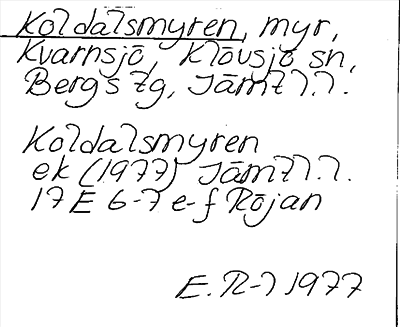 Koldalsmyren, myr,
Kvarnsjö, Klövsjö sn,
Bergs tg, Jämtl.l.
Koldalsmyren
ek (1977) Jämtl.l.
17 E 6-7 e-f Röjan
E. R-l 1977